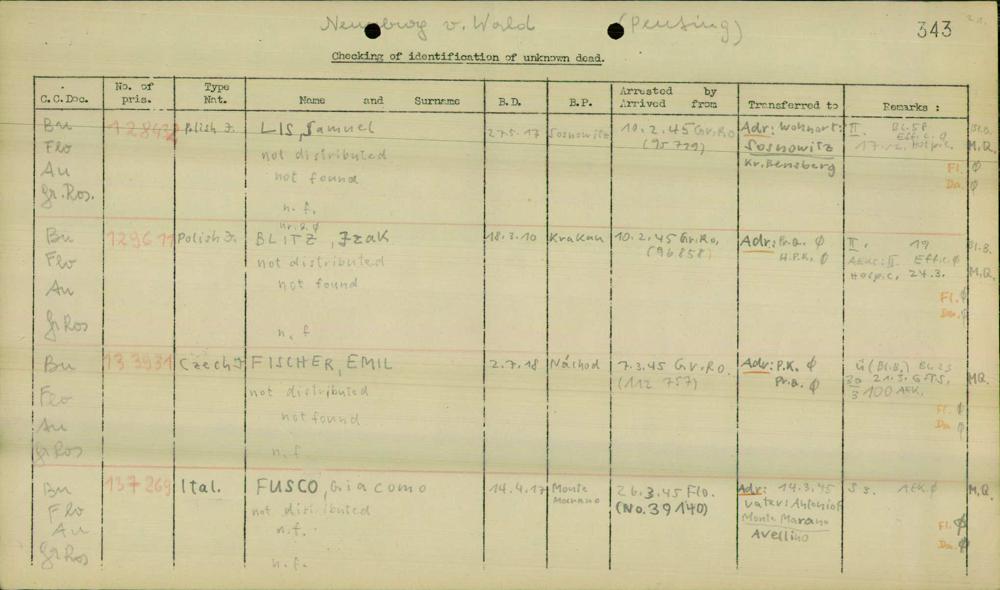 v. Wald (Pensing) 343
Checking of identification of unknown dead.
C.C.Doc. No. of pris. Type Nat. Name and Surname B.D. B.P. Arrested by Arrived from Transferred to Remarks :
Bu Polish J. LIS, Samuel 27.5.17 Sosnowitz 10.2.45 Gr.Ro Adr: Wohnort: II. Bl.58 Bl.B.
Flo not distributed (95729) Sosnowitz 17.12. Hospic. M.Q.
Au not found Kr. Bensberg Fl. Ø
Gr.Ros. n.f. Da. Ø
Bu Polish J. BLITZ, Izak 18.3.10 Krakau 10.2.45 Gr.Ro. Adr: Pr.a. Ø II. 19 Bl.B.
Flo not distributed (96858) H.P.K. Ø Effic. Ø M.Q.
Au not found Hospic. 24.3. Fl. Ø
Gr Ros n.f Da. Ø
Bu 133931 Czech J FISCHER, EMIL 2.7.18 Náchod 7.3.45 Gr.Ro. Adr: P.K. Ø M.Q.
Flo not distributed (112 757) Pr.a. Ø 100 AEK.
Au not found Fl. Ø
Gr Ros n.f Da. Ø
Bu 137269 Ital. FUSCO, Giacomo 14.4.17 Monte Marano 26.3.45 Flo. Adr: 14.3.45 AEK. Ø M.Q.
Flo not distributed (No. 39140) Vater: Antonio
Au n.f. Monte Marano Fl. Ø
Gr Ros n.f. Avellino Da. Ø